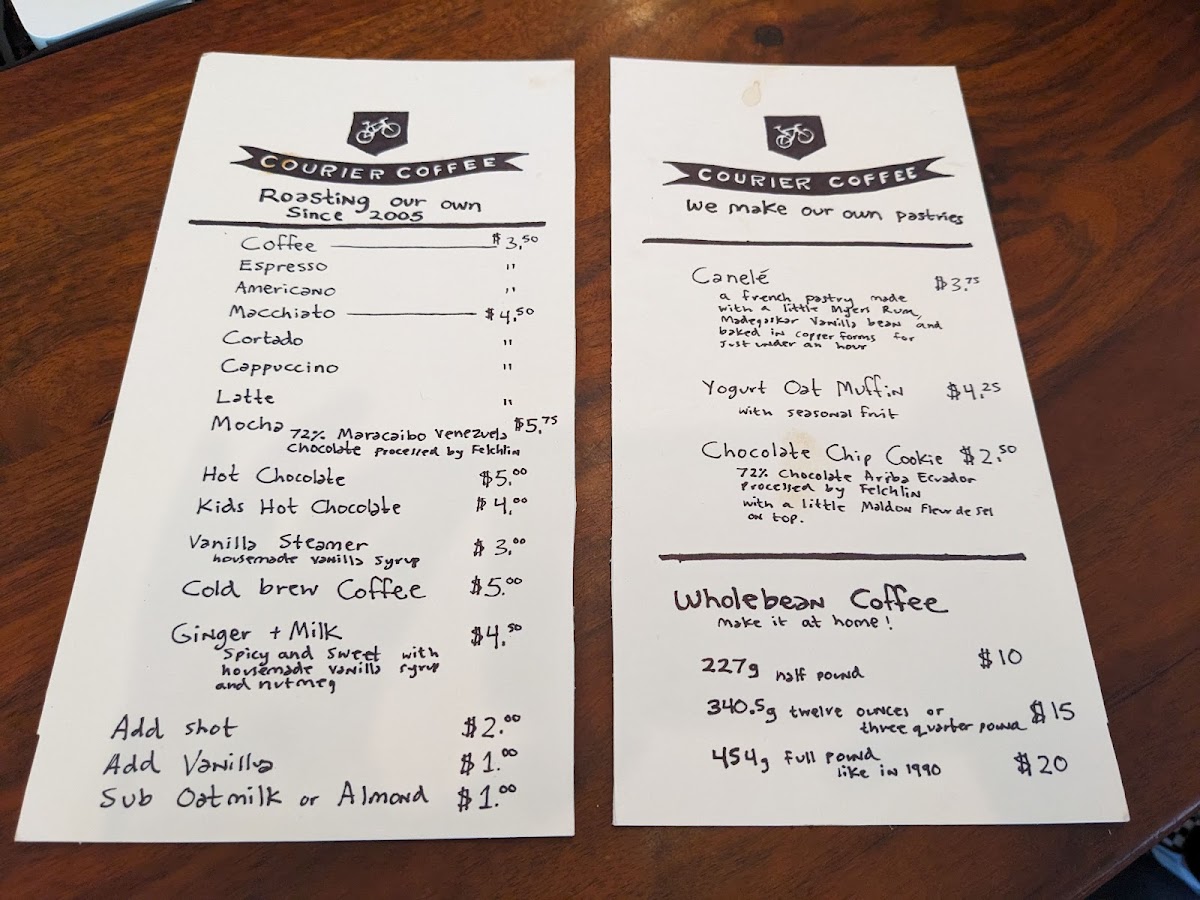 COURIER COFFEE
Roasting our own
Since 2005
Coffee $3.50
Espresso "
Americano "
Macchiato $4.50
Cortado "
Cappuccino "
Latte "
Mocha $5.75
72% Maracaibo Venezuela
Chocolate processed by Felchlin
Hot Chocolate $5.00
Kids Hot Chocolate $4.00
Vanilla Steamer $3.00
housemade vanilla syrup
Cold brew Coffee $5.00
Ginger + Milk $4.50
Spicy and sweet with
housemade vanilla syrup
and nutmeg
Add shot $2.00
Add Vanilla $1.00
Sub Oatmilk or Almond $1.00
COURIER COFFEE
We make our own pastries
Canelé $3.75
a french pastry made
with a little Myers Rum,
Madegaskar Vanilla bean and
baked in copper forms for
just under an hour
Yogurt Oat Muffin $4.25
with seasonal fruit
Chocolate Chip Cookie $2.50
72% Chocolate Ariba Ecuador
Processed by Felchlin
with a little Maldon Fleur de Sel
on top.
Wholebean Coffee
make it at home!
227g half pound $10
340.5g twelve ounces or $15
three quarter pound
454g full pound $20
like in 1990